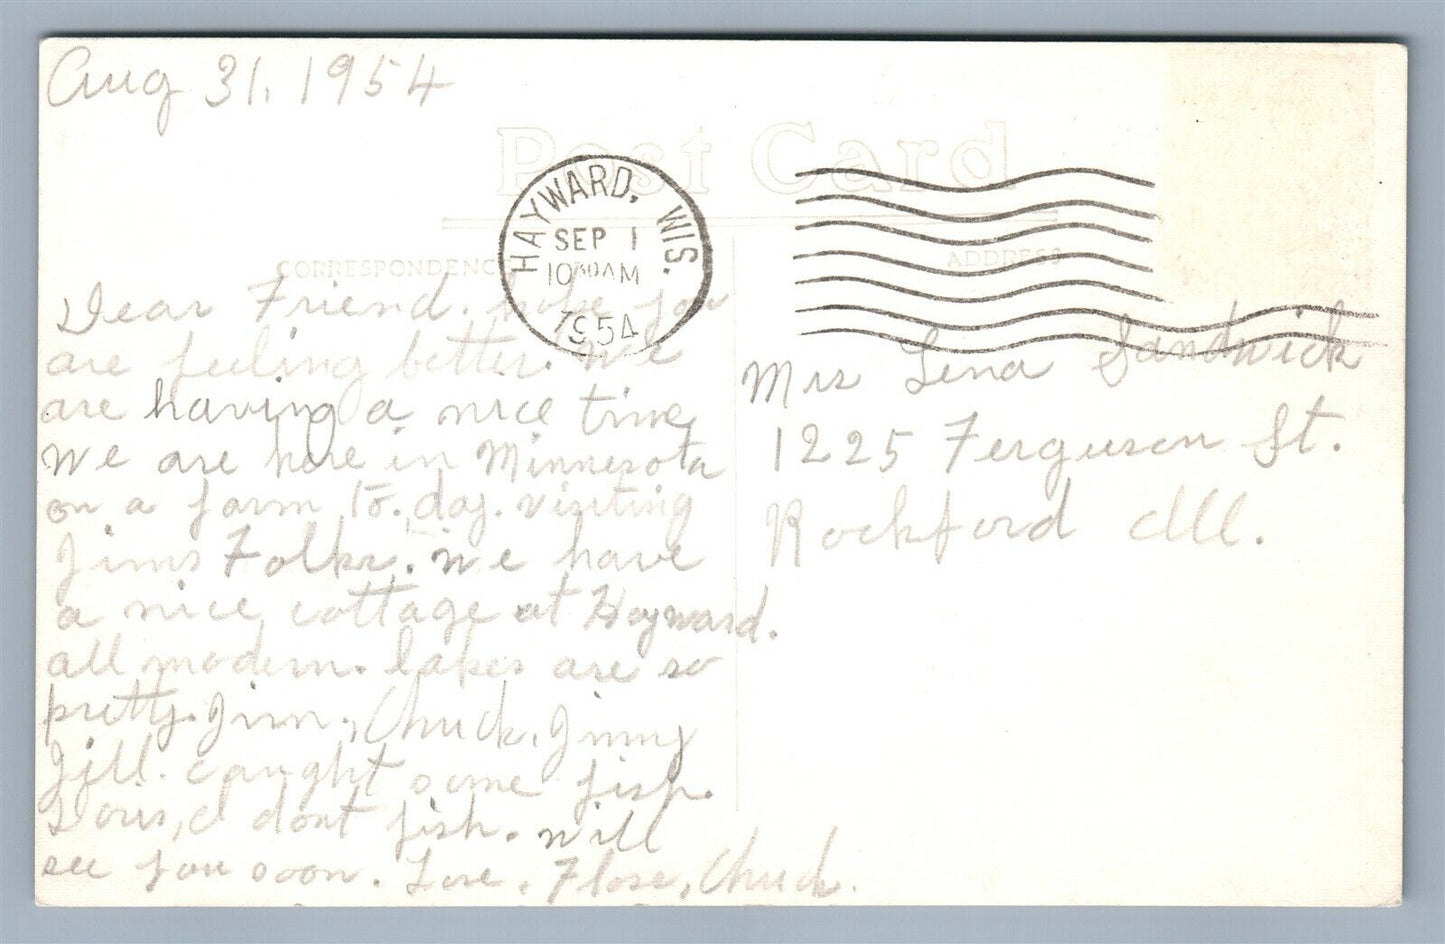 Aug 31, 1954
Post Card
HAYWARD, WIS.
SEP 1
1030AM
1954
CORRESPONDENCE
ADDRESS
Dear Friend. hope you
are feeling better. We
are having a nice time,
We are here in Minnesota
on a farm to. day. visiting
Jims Folks. we have
a nice cottage at Hayward.
all modern. lakes are so
pretty. Jim, Chuck, Jimmy
Jill. caught some fish.
Lois, I dont fish. will
see you soon. Love. Flose, Chuck.
Mrs Lena Sandwick
1225 Ferguson St.
Rockford Ill.